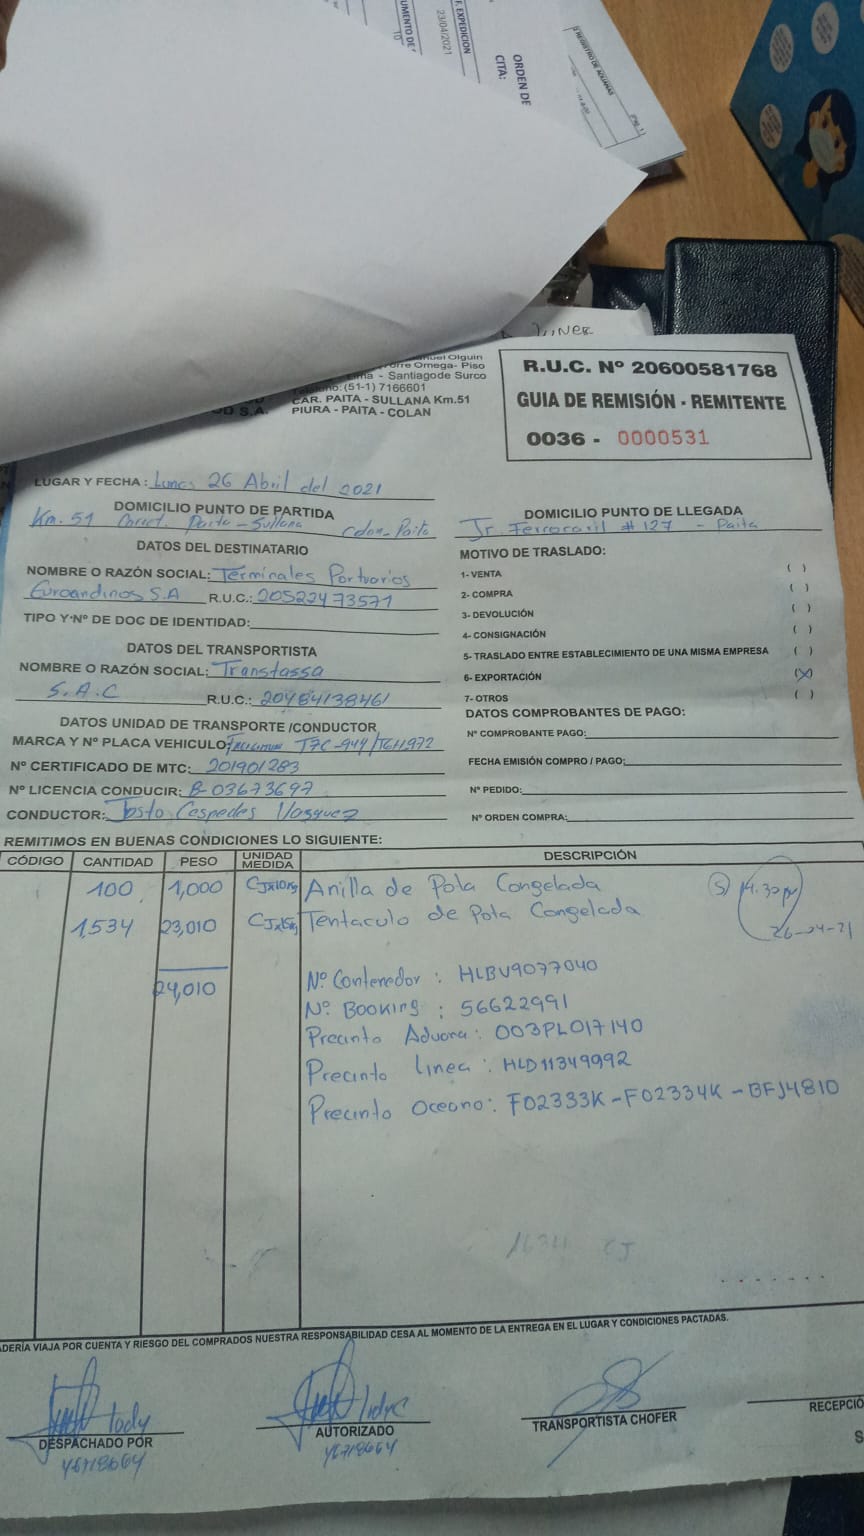 F. EXPEDICION
23/04/2021
ORDEN DE
CITA:
REGISTRO DE ADUANAS
Olguin
Omega- Piso
- Santiagode Surco
(51-1) 7166601
CAR. PAITA - SULLANA Km.51
S.A. PIURA - PAITA - COLAN
R.U.C. Nº 20600581768
GUIA DE REMISIÓN - REMITENTE
0036 - 0000531
LUGAR Y FECHA : Lunes 26 Abril del 2021
DOMICILIO PUNTO DE PARTIDA
Km. 51 Carret. Paita - Sullana Colan - Paita
DOMICILIO PUNTO DE LLEGADA
Jr. Ferrocaril # 127 - Paita
DATOS DEL DESTINATARIO
NOMBRE O RAZÓN SOCIAL: Terminales Portuarios
Euroandinos S.A R.U.C.: 20522473571
TIPO Y Nº DE DOC DE IDENTIDAD:
DATOS DEL TRANSPORTISTA
NOMBRE O RAZÓN SOCIAL: Transtassa
S.A.C R.U.C.: 20484138461
DATOS UNIDAD DE TRANSPORTE /CONDUCTOR
MARCA Y Nº PLACA VEHICULO:
Nº CERTIFICADO DE MTC: 201901283
Nº LICENCIA CONDUCIR: B-03673697
CONDUCTOR: Justo Cespedes Vasquez
MOTIVO DE TRASLADO:
1- VENTA ( )
2- COMPRA ( )
3- DEVOLUCIÓN ( )
4- CONSIGNACIÓN ( )
5- TRASLADO ENTRE ESTABLECIMIENTO DE UNA MISMA EMPRESA ( )
6- EXPORTACIÓN (X)
7- OTROS ( )
DATOS COMPROBANTES DE PAGO:
Nº COMPROBANTE PAGO:
FECHA EMISIÓN COMPRO / PAGO:
Nº PEDIDO:
Nº ORDEN COMPRA:
REMITIMOS EN BUENAS CONDICIONES LO SIGUIENTE:
CÓDIGO CANTIDAD PESO UNIDAD MEDIDA DESCRIPCIÓN
100 1,000 CJx10kg Anilla de Pota Congelada
1,534 23,010 CJx15kg Tentaculo de Pota Congelada
24,010
(S) 14.30 pm
26-04-21
Nº Contenedor : HLBU9077040
Nº Booking : 56622991
Precinto Aduana : 003PL017140
Precinto Linea : HLD11349992
Precinto Oceano: F02333K-F02334K-BFJ4810
CJ
VIAJA POR CUENTA Y RIESGO DEL COMPRADOS NUESTRA RESPONSABILIDAD CESA AL MOMENTO DE LA ENTREGA EN EL LUGAR Y CONDICIONES PACTADAS.
DESPACHADO POR
AUTORIZADO
TRANSPORTISTA CHOFER